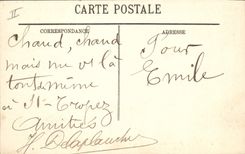 II
CARTE POSTALE
CORRESPONDANCE
ADRESSE
Chaud, chaud
mais me v'là
tout de même
à St-Tropez
Amitiés
H. Delaplanche
Pour
Emile